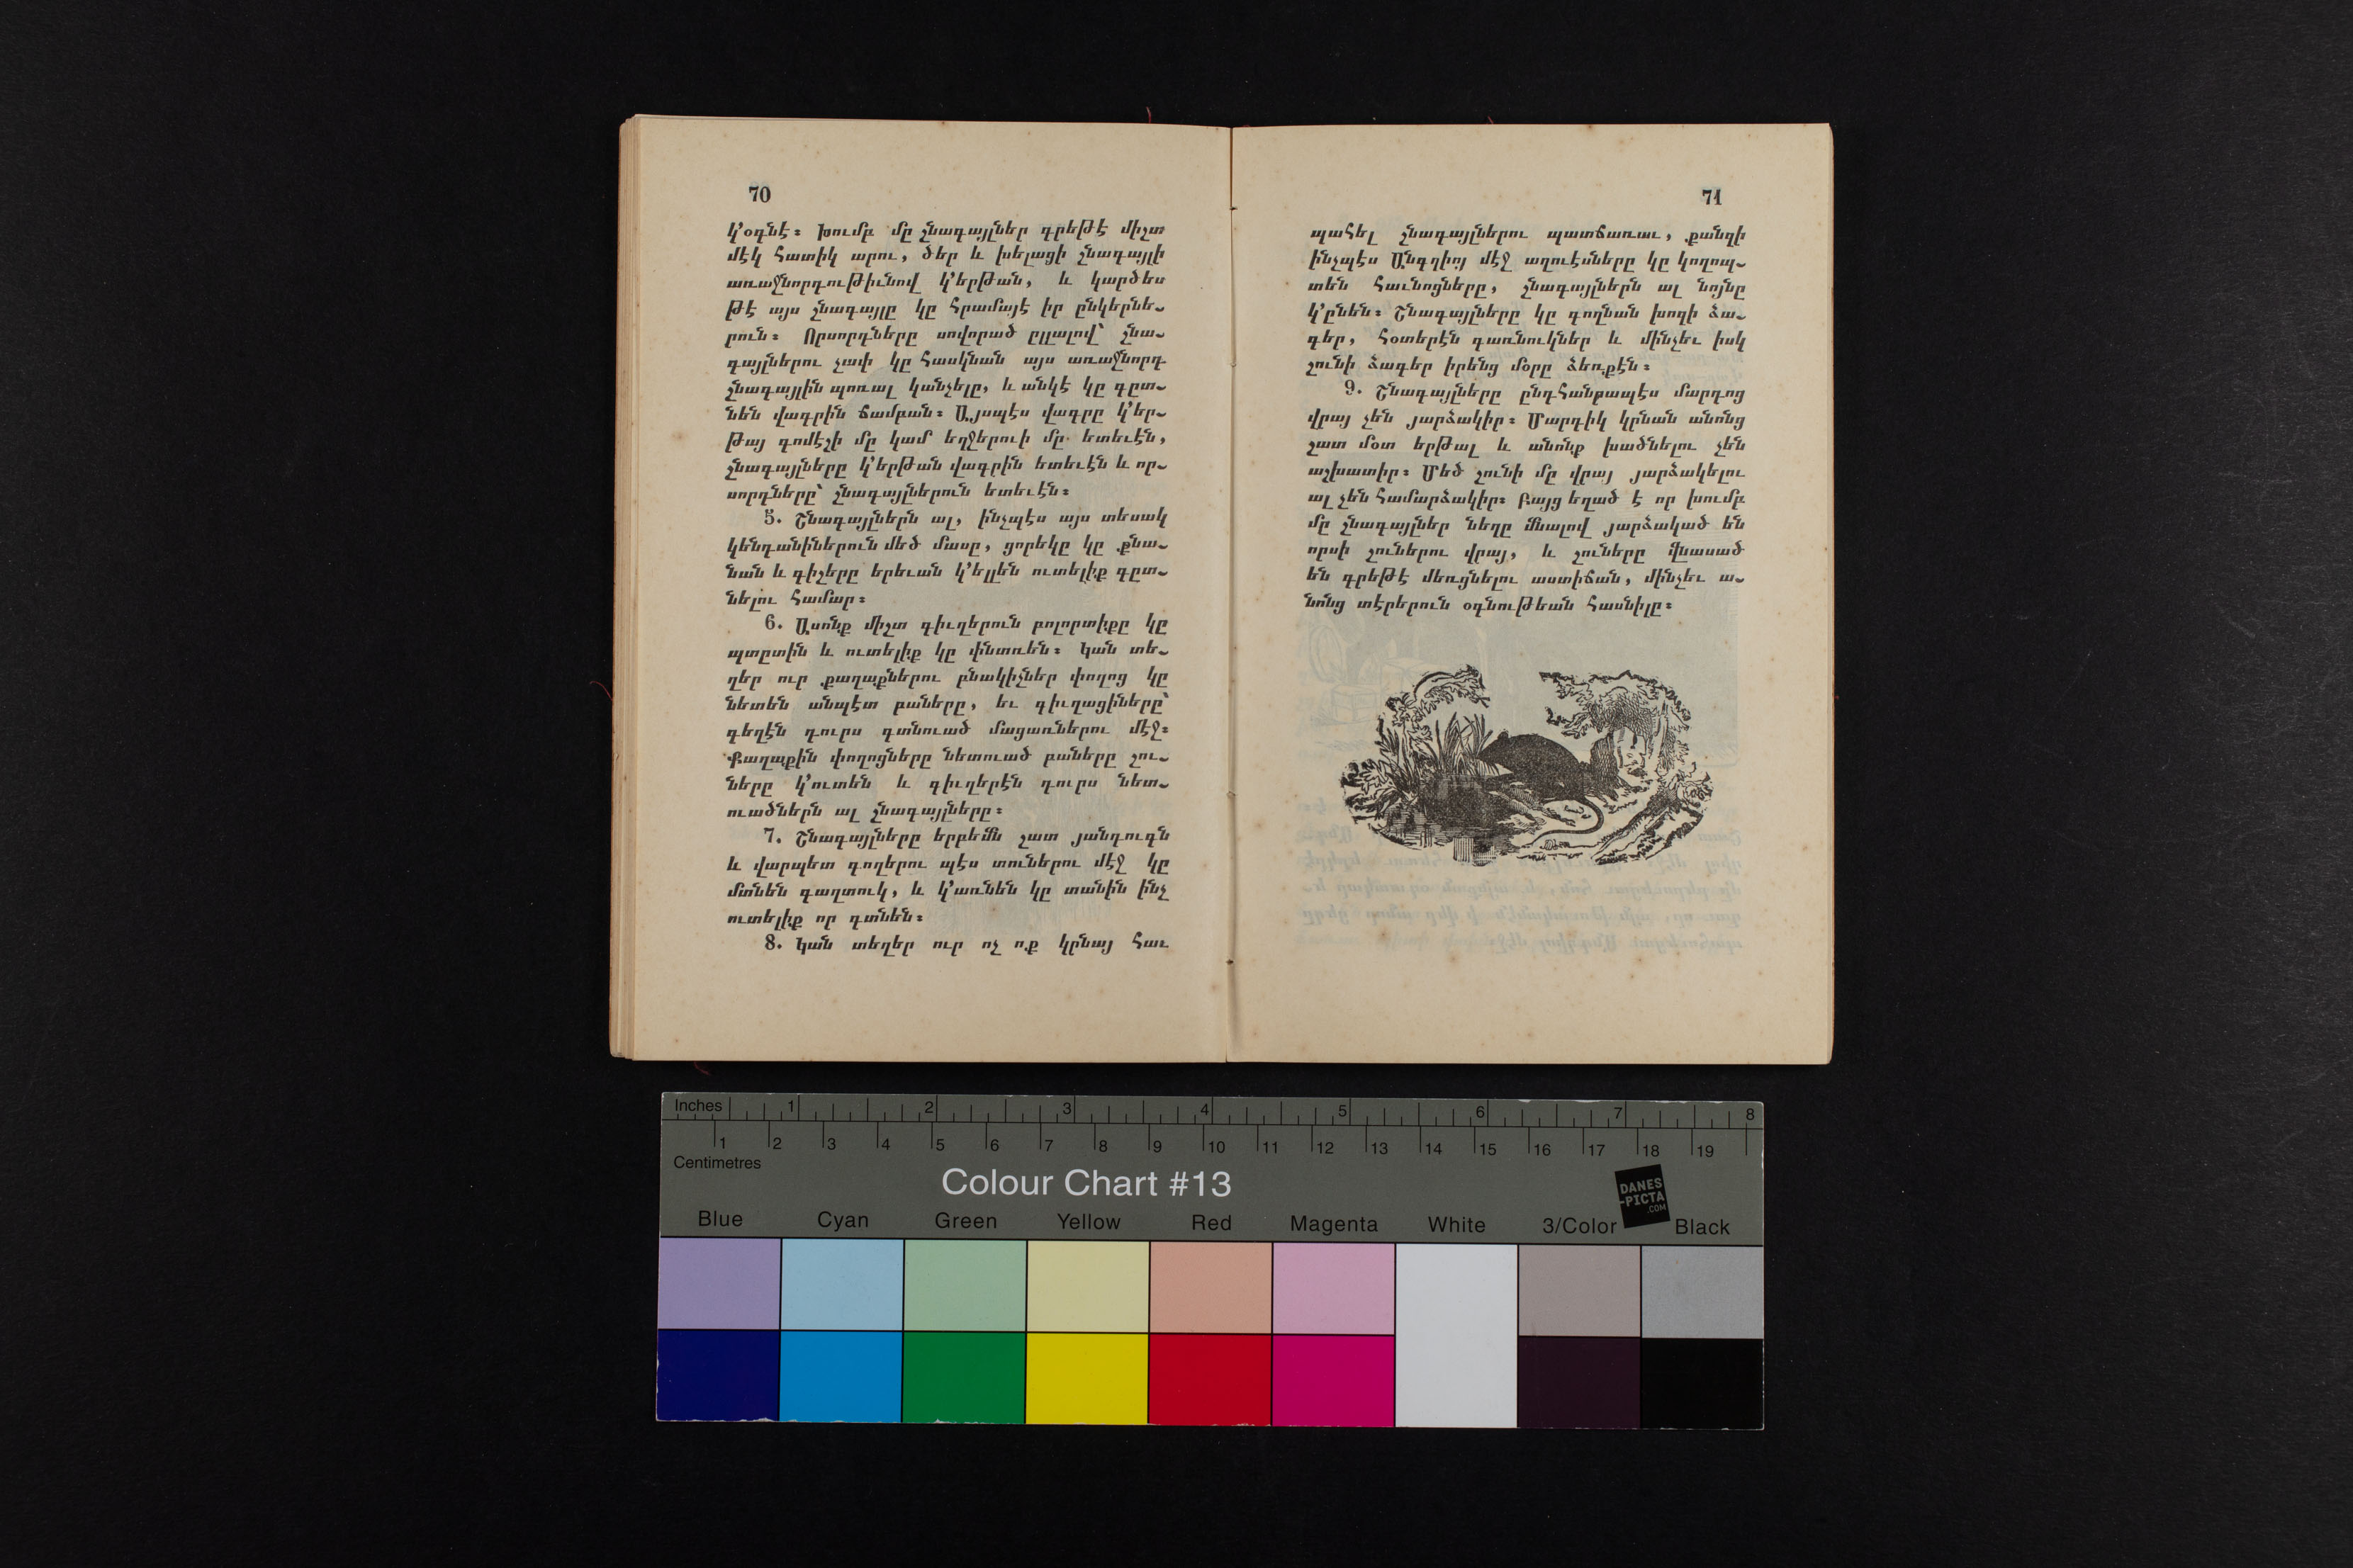 70
կ՚օգնէ։ Խումբ մը շնագայլներ գրեթէ միշտ
մէկ հատիկ արու, ծեր և խելացի շնագայլի
առաջնորդութիւնով կ՚երթան, և կարծես
թէ այս շնագայլը կը հրամայէ իր ընկերնե֊
րուն։ Որսորդները սովորած ըլլալով՝ շնա֊
գայլներու չափ կը հասկնան այս առաջնորդ
շնագայլին պոռալ կանչելը, և անկէ կը գըտ֊
նեն վագրին ճամբան։ Այսպէս վագրը կ՚եր֊
թայ գոմէշի մը կամ եղջերուի մը ետեւէն,
շնագայլները կ՚երթան վագրին ետեւէն և որ֊
սորդները՝ շնագայլներուն ետեւէն։
5. Շնագայլներն ալ, ինչպէս այս տեսակ
կենդանիներուն մեծ մասը, ցորեկը կը քնա֊
նան և գիշերը երեւան կ՚ելլեն ուտելիք գըտ֊
նելու համար։
6. Ասոնք միշտ գիւղերուն բոլորտիքը կը
պտըտին և ուտելիք կը փնտռեն։ Կան տե֊
ղեր ուր քաղաքներու բնակիչներ փողոց կը
նետեն անպէտ բաները, եւ գիւղացիները՝
գեղէն դուրս գտնուած մացառներու մէջ։
Քաղաքին փողոցները նետուած բաները շու֊
ները կ՚ուտեն և գիւղերէն դուրս նետ֊
ուածներն ալ շնագայլները։
7. Շնագայլները երբեմն շատ յանդուգն
և վարպետ գողերու պէս տուներու մէջ կը
մտնեն գաղտուկ, և կ՚առնեն կը տանին ինչ
ուտելիք որ գտնեն։
8. Կան տեղեր ուր ոչ ոք կրնայ հաւ
71
պահել շնագայլներու պատճառաւ, քանզի
ինչպէս Անգղիոյ մէջ աղուէսները կը կողոպ֊
տեն հաւնոցները, շնագայլներն ալ նոյնը
կ՚ընեն։ Շնագայլները կը գողնան խոզի ձա֊
գեր, հօտերէն գառնուկներ և մինչեւ իսկ
շունի ձագեր իրենց մօրը ձեռքէն։
9. Շնագայլները ընդհանրապէս մարդոց
վրայ չեն յարձակիր։ Մարդիկ կրնան անոնց
շատ մօտ երթալ և անոնք խածնելու չեն
աշխատիր։ Մեծ շունի մը վրայ յարձակելու
ալ չեն համարձակիր։ Բայց եղած է որ խումբ
մը շնագայլներ նեղը մնալով յարձակած են
որսի շուներու վրայ, և շուները վնասած
են գրեթէ մեռցնելու աստիճան, մինչեւ ա֊
նոնց տէրերուն օգնութեան հասնիլը։
Inches 1 2 3 4 5 6 7 8
1 2 3 4 5 6 7 8 9 10 11 12 13 14 15 16 17 18 19
Centimetres
Colour Chart #13
DANES
-PICTA
.COM
Blue Cyan Green Yellow Red Magenta White 3/Color Black